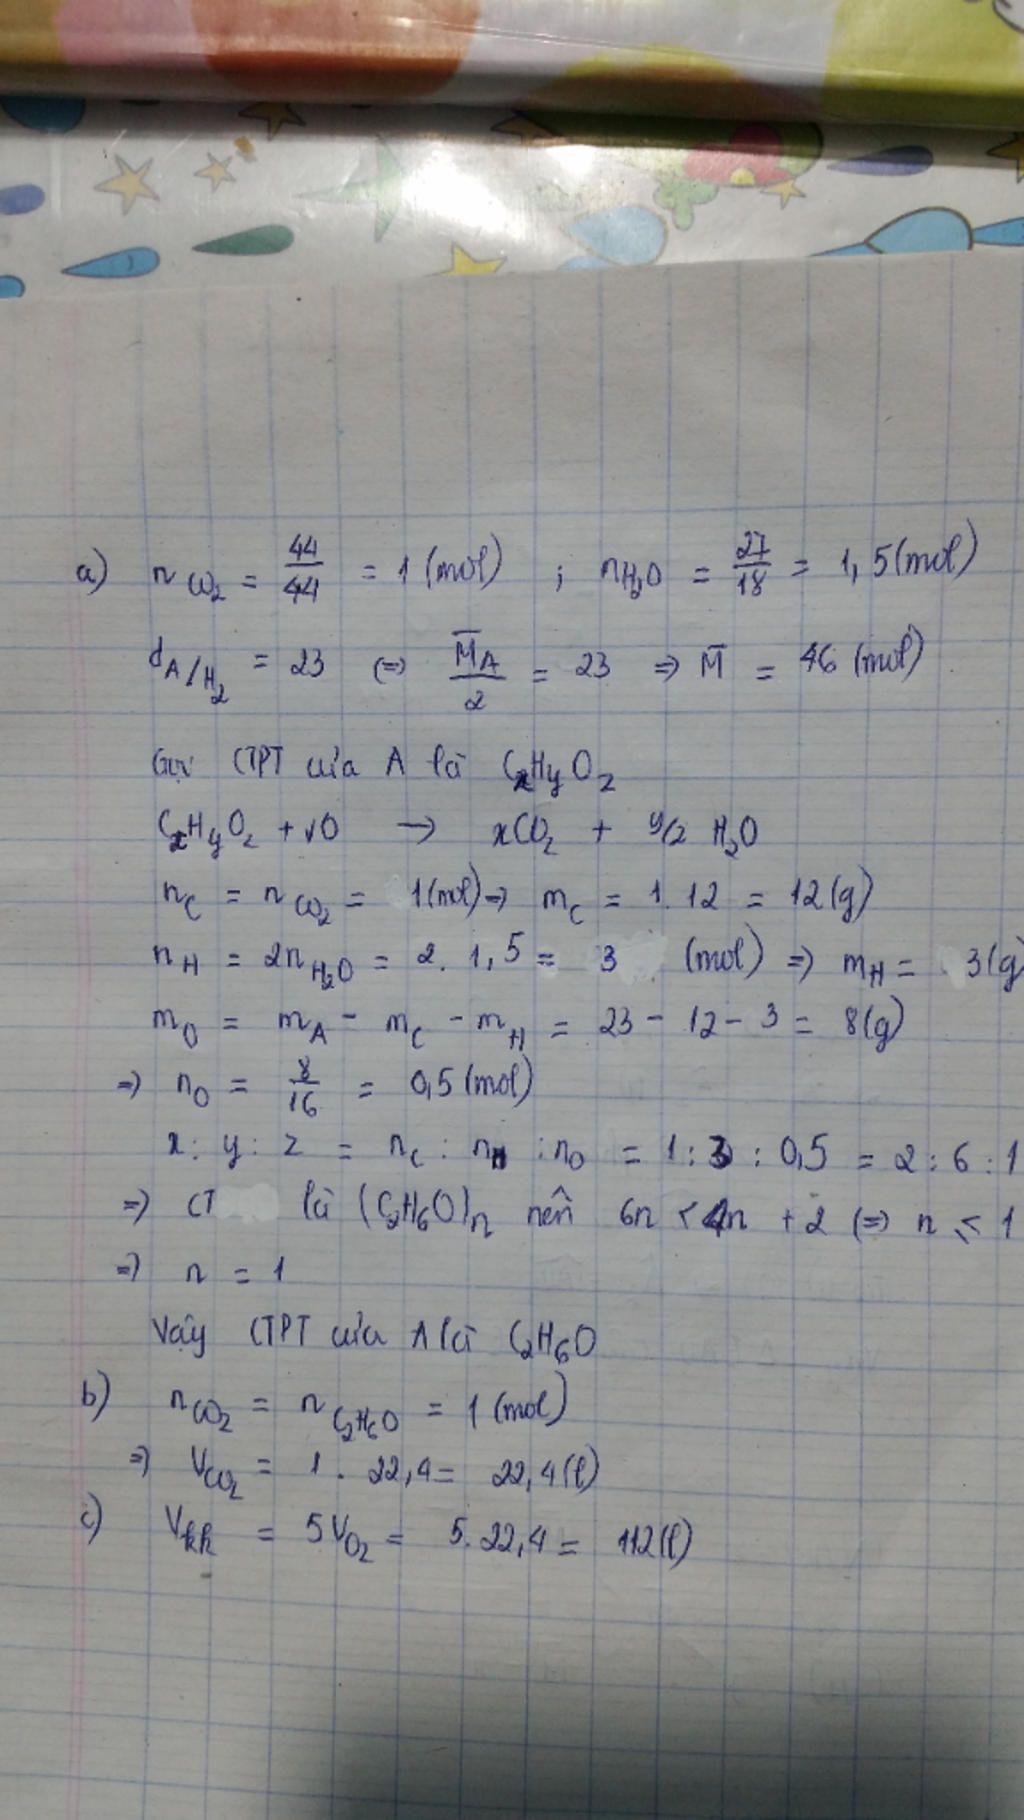 a) n CO₂ = 44/44 = 1 (mol) ; nH₂O = 27/18 = 1,5 (mol)
dA/H₂ = 23 (=) M̄A/2 = 23 => M̄ = 46 (mol)
Gọi CTPT của A là CxHyO2
CxHyO2 + vO → xCO₂ + y/2 H₂O
nC = nCO₂ = 1 (mol) => mC = 1.12 = 12 (g)
nH = 2nH₂O = 2. 1,5 = 3 (mol) => mH = 3 (g)
mO = mA - mC - mH = 23 - 12 - 3 = 8 (g)
=> nO = 8/16 = 0,5 (mol)
x : y : z = nC : nH : nO = 1 : 3 : 0,5 = 2 : 6 : 1
=> CT là (C₂H6O)n nên 6n < 4n + 2 (=) n ≤ 1
=> n = 1
Vậy CTPT của A là C₂H6O
b) nCO₂ = nC₂H6O = 1 (mol)
=> VCO₂ = 1 . 22,4 = 22,4 (l)
c) Vkk = 5VO₂ = 5. 22,4 = 112 (l)